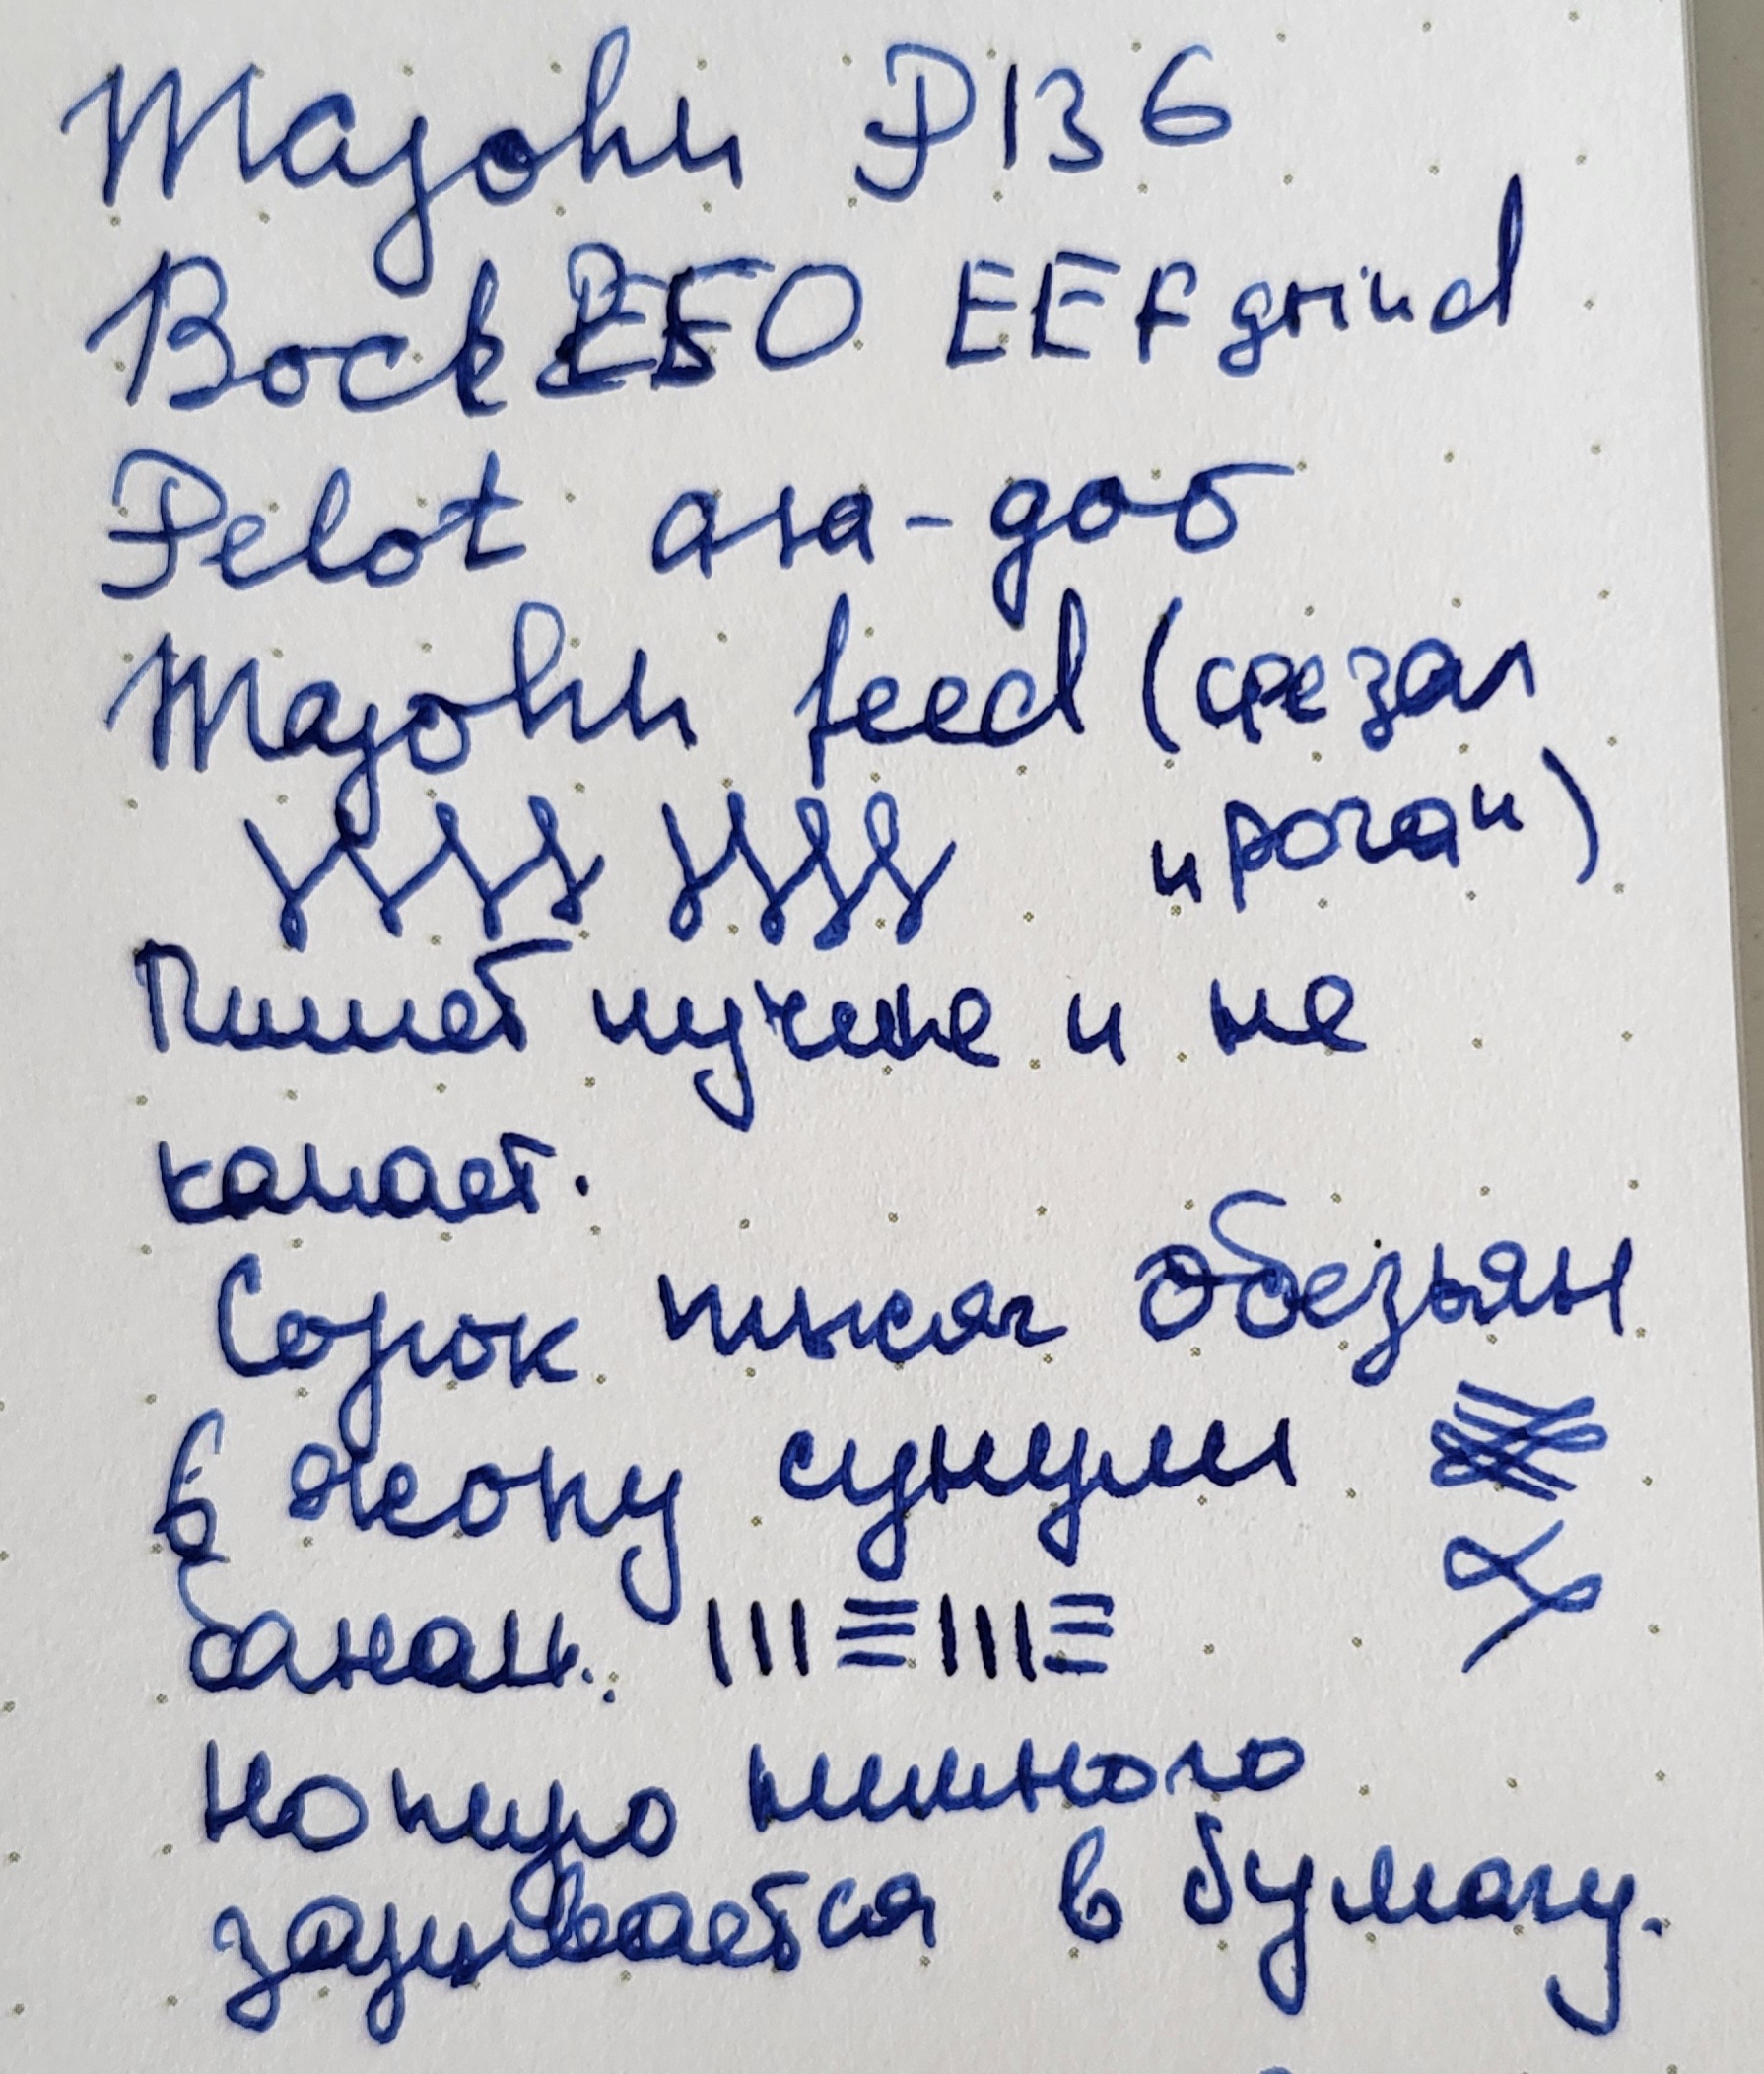 Majohn P136
Bock 250 EEF grind
Pelot asa-gao
Majohn feed (срезал
"рога")
Пишет лучше и не
капает.
Сорок тысяч обезьян
в жопу сунули
банан.
Но перо немного
зарывается в бумагу.